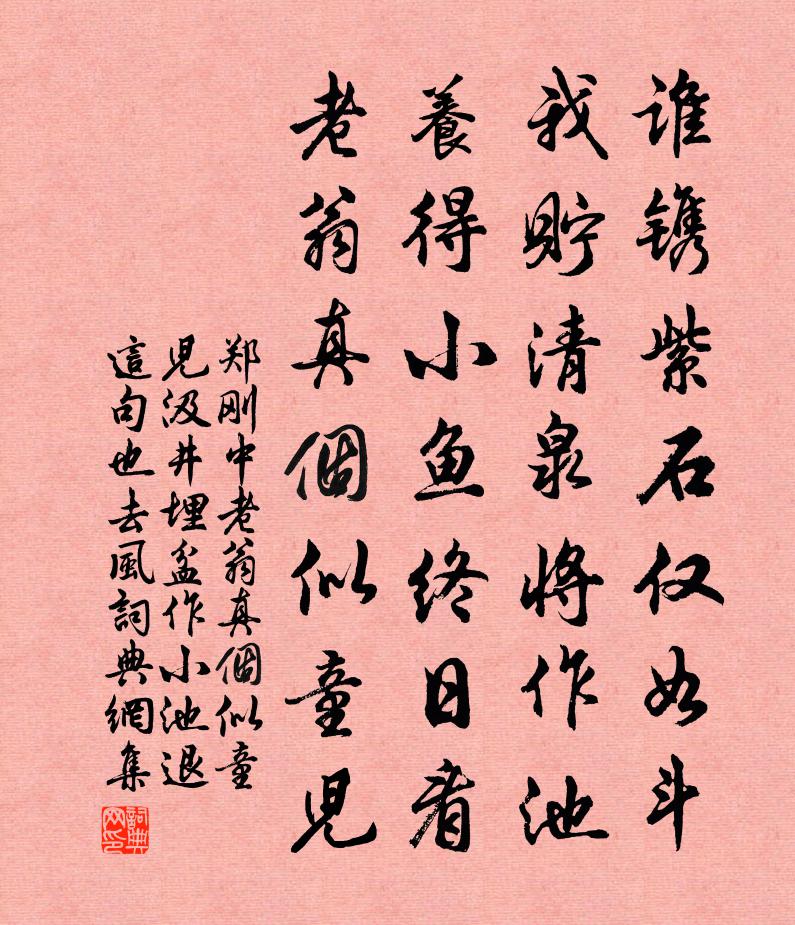 谁镌紫石仅如斗
我貯清泉将作池
養得小鱼终日看
老翁真個似童児
郑刚中老翁真個似童
児汲井埋盆作小池退
這句也去風詞典網集
詞典网印